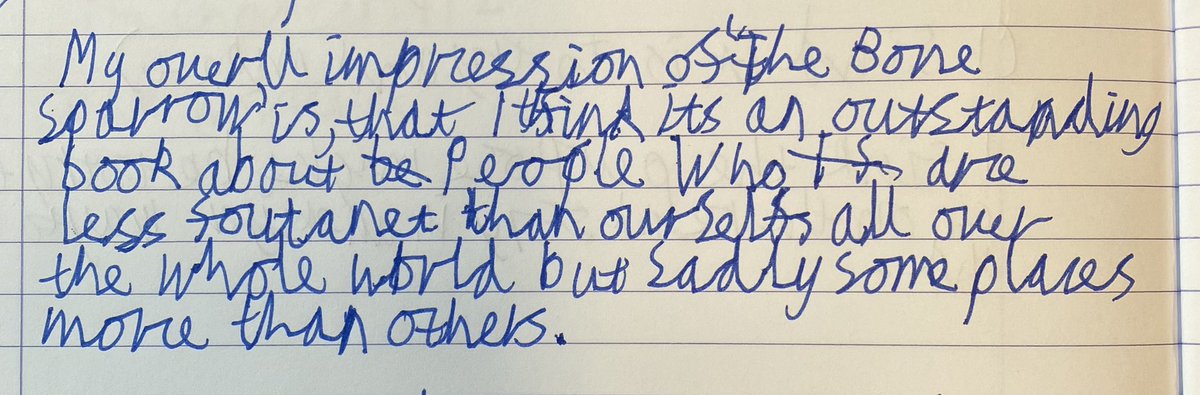 My overll impression of "The Bone
Sparrow" is, that I think its an outstanding
book about be People who are
less foutanet than ourselfs all over
the whole world but sadly some places
more than others.